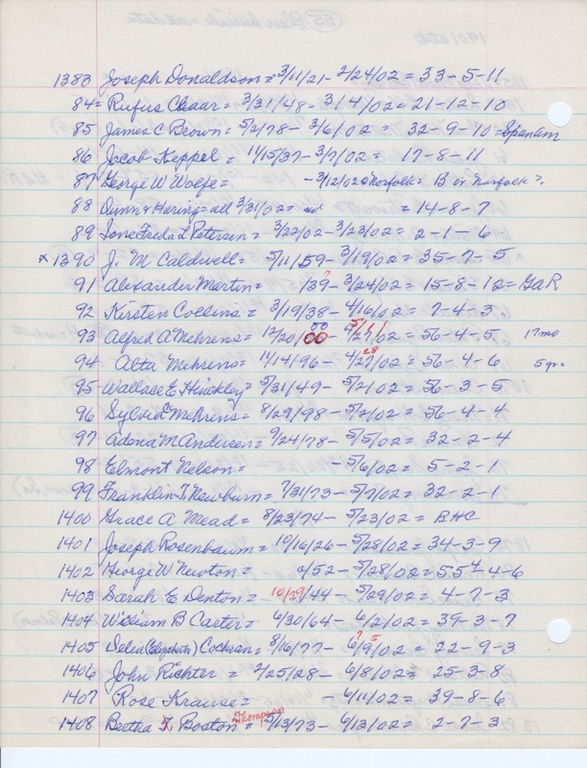 1383 Joseph Donaldson = 3/11/21 - 2/24/02 = 33-5-11
84 = Rufus Chaar = 3/31/48 - 3/4/02 = 21-12-10
85 James C Brown = 5/2/78 - 3/6/02 = 32-9-10 = Spanam
86 Jacob Keppel = 11/15/37 - 3/7/02 = 17-8-11
87 George W Wolfe = - 3/12/02 @ Norfolk = B or Norfolk?
88 Dunn & Haring = all 3/31/02 = = 14-8-7
89 Freda L Petersen = 3/22/02 - 3/23/02 = 2-1-6
x 1390 J. M Caldwell = 5/11/59 - 3/19/02 = 35-7-5
91 Alexander Martin = /39? - 3/24/02 = 15-8-12 = GaR
92 Kirsten Collins = 3/19/38 - 4/16/02 = 7-4-3
93 Alfred A Mehrens = 12/20/00 - 4/27/02 = 56-4-5 17mo
94 Alta Mehrens = 11/14/96 - 4/27/02 = 56-4-6 5yr
95 Wallace E Hinckley = 5/31/49 - 5/2/02 = 56-3-5
96 Sylvia Mehrens = 8/29/98 - 5/2/02 = 56-4-4
97 Adona M Andersen = 9/24/78 - 5/5/02 = 32-2-4
98 Elmont Nelson = - 5/6/02 = 5-2-1
99 Franklin T Newburn = 7/31/73 - 5/7/02 = 32-2-1
1400 Grace A Mead = 8/23/74 - 5/23/02 = BHC
1401 Joseph Rosenbaum = 10/16/26 - 5/28/02 = 34-3-9
1402 George W Newton = /52 - 5/28/02 = 55-4-6
1403 Sarah E Denton = 10/29/44 - 5/29/02 = 4-7-3
1404 William B Carter = 6/30/64 - 6/2/02 = 39-3-7
1405 Delia (Elizabeth) Cochran = 8/16/77 - 6/9/02 = 22-9-3
1406 John Richter = 2/25/28 - 6/8/02 = 25-3-8
1407 Rose Krause = - 6/11/02 = 39-8-6
1408 Bertha Thompson Boston = 5/13/73 - 6/13/02 = 2-7-3